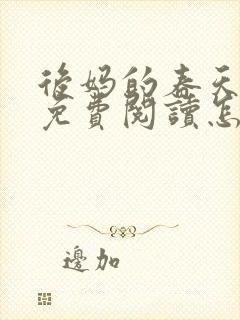 後妈的春天
免費閱讀怎
邊加